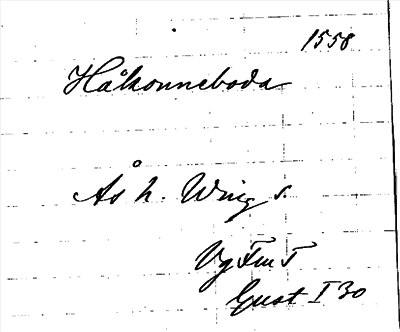 1558
Håkonneboda
Ås h. Wing s.
Vg Fm T
Gust I 30